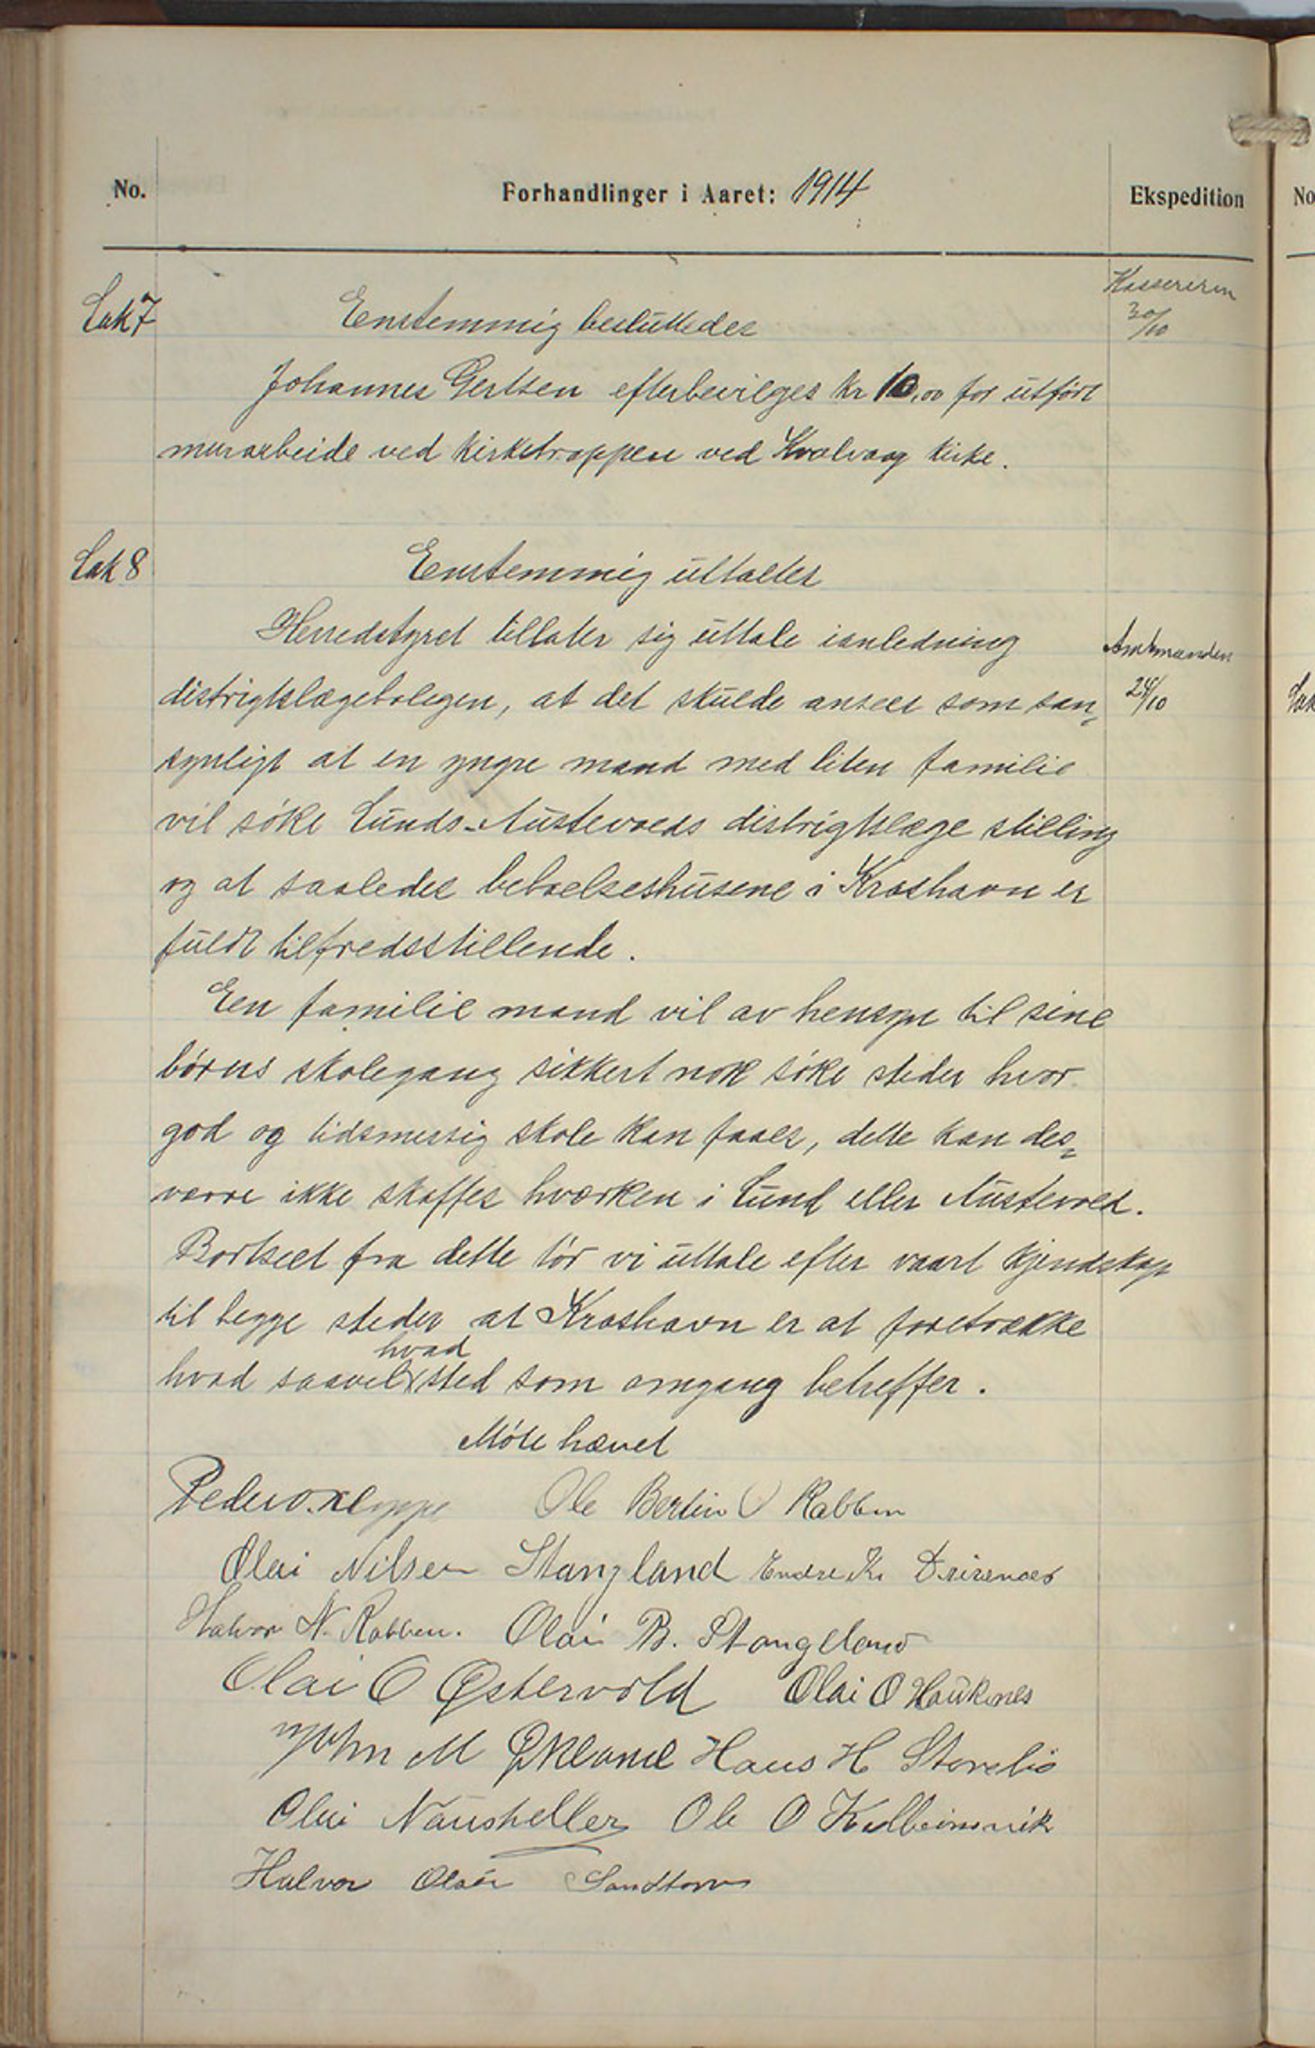 No.
Forhandlinger i Aaret: 1914
Ekspedition
No
Sak 7
Enstemmig besluttedes
Kassereren
30/10
Johannes Gertsen efterbevilges kr 10,00 for utført
murarbeide ved kirketrappen ved Kvalvaag kirke.
Sak 8
Enstemmig uttaltes
Herredstyret tillater sig uttale ianledning
Amtmanden
28/10
distrigtslægebolegen, at det skulde ansees som san„
Sak
synligt at en yngre mand med liten familie
vil søke Sunds-Austevolds distrigtslæge stilling
og at saaledes beboelseshusene i Kroshavn er
fuldt tilfredsstillende.
Een familie mand vil av hensyn til sine
børns skolegang sikkert nok søke steder hvor
god og tidsmessig skole kan faaes, dette kan des„
værre ikke skaffes hværken i Sund eller Austevold.
Bortseet fra dette tør vi uttale efter vaart kjendskap
til begge steder at Kroshavn er at foretrække
hvad
hvad saavel sted som omgang betreffer.
Møte hævet
Peder O. Kleppe Ole Berlin O Rabben
Olai Nilsen Stangeland Endre Kr Drivenes
Halvor N. Rabben. Olai B. Stangeland
Olai O Østervold Olai O Haukanes
John M Økland Hans H Storelid
Olai Nausheller Ole O Kolbeinsvik
Halvor Olsen Sandtorv